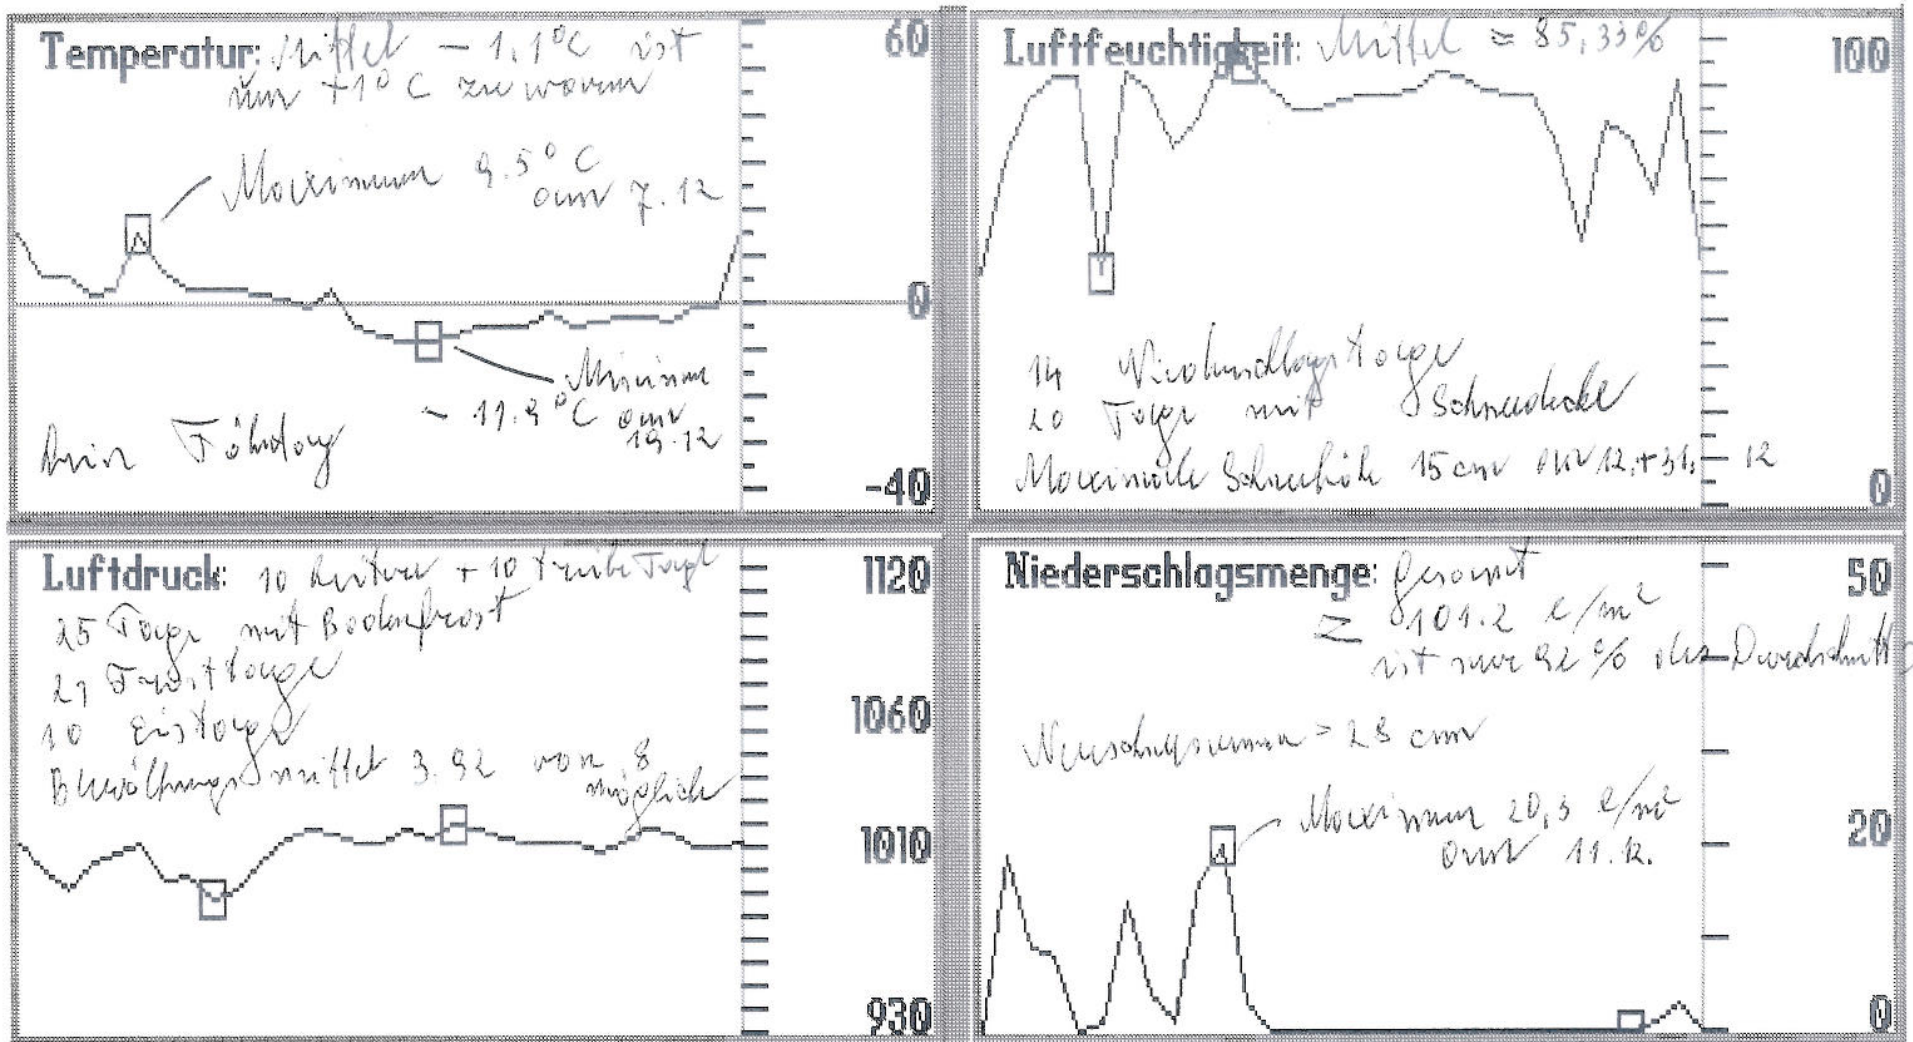 Temperatur: Mittel - 1,1°C ist
um +1°C zu warm
60
Maximum 9.5°C
am 7.12
0
Minimum
- 11.9°C am
19.12
Kein Föhntag
-40
Luftfeuchtigkeit: Mittel = 85,33%
100
14 Niederschlagstage
20 Tage mit Schneedecke
Maximale Schneehöhe 15 cm am 12.+31. 12
0
Luftdruck: 10 heitere + 10 trübe Tage
1120
25 Tage mit Bodenfrost
Frosttage
10 Eistage
1060
Bewölkungsmittel 3.92 von 8
möglich
1010
930
Niederschlagsmenge: Gesamt
50
= 101.2 l/m²
ist nur 92% des Durchschnitts
Neuschneesumme = 28 cm
Maximum 20,3 l/m²
am 11.12.
20
0